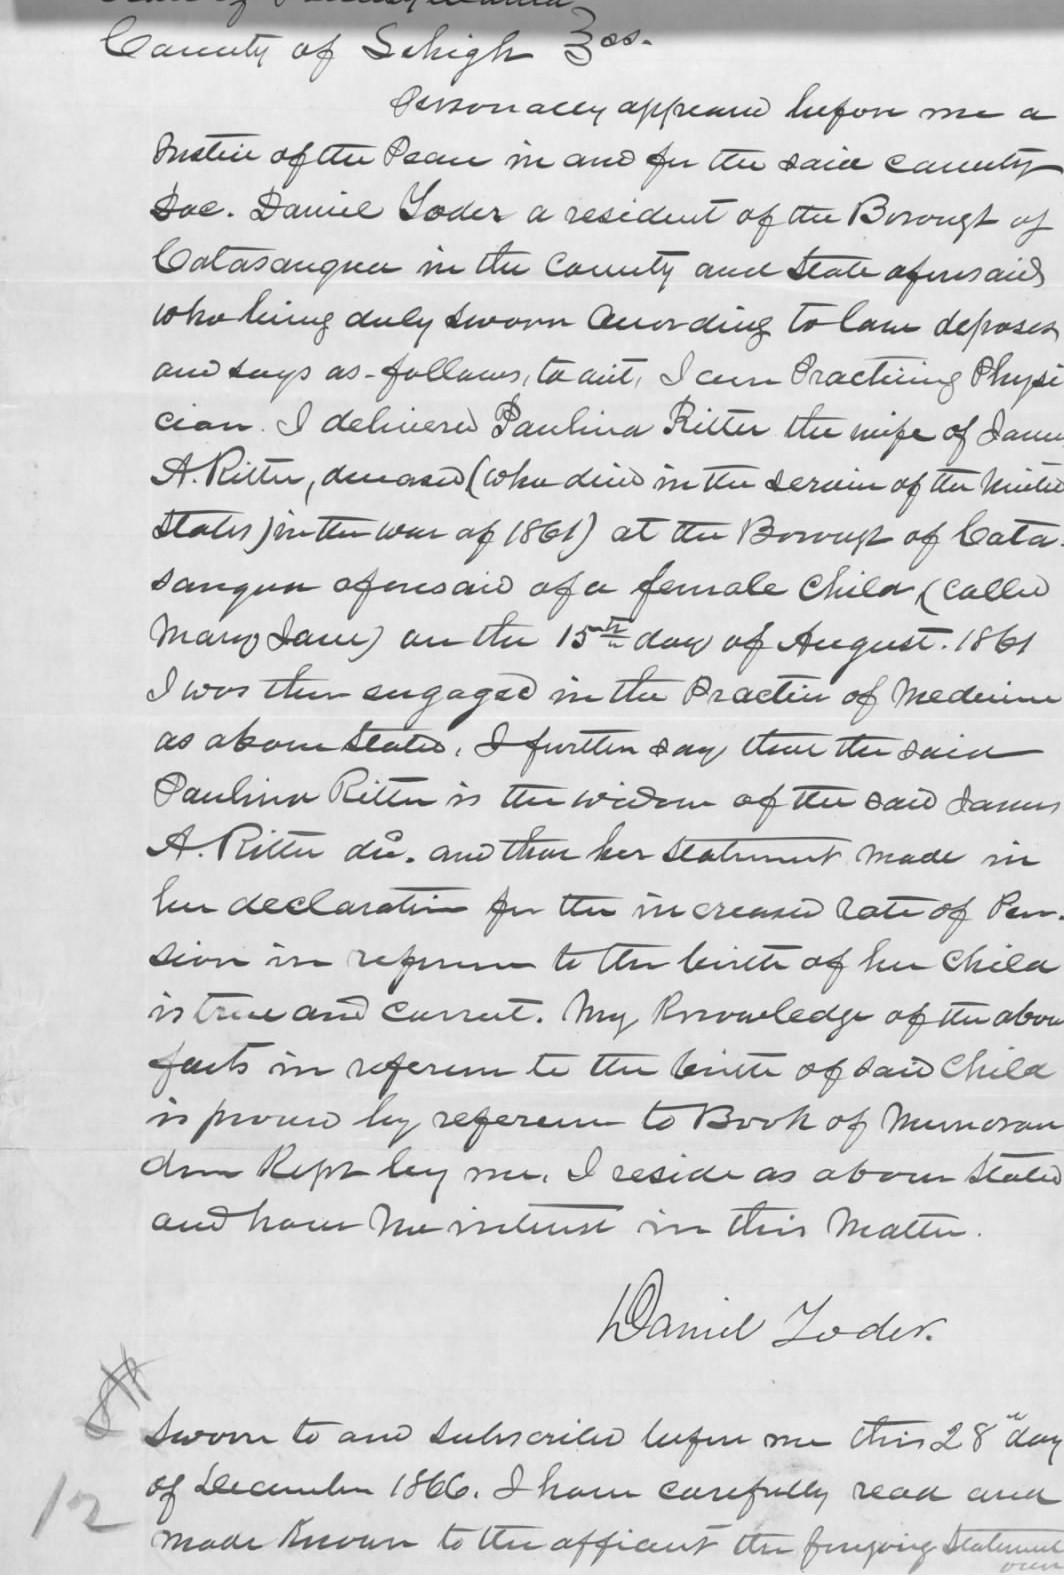 State of Pennsylvania
County of Lehigh } ss.
Personally appeared before me a
Justice of the Peace in and for the said county
Doc. Daniel Yoder a resident of the Borough of
Catasauqua in the County and State aforesaid
who being duly sworn according to law deposes
and says as follows, to wit, I am Practicing Physi
cian. I delivered Paulina Ritter the wife of James
A. Ritter, deceased (who died in the service of the United
States) in the war of 1861) at the Borough of Cata-
sauqua aforesaid of a female child (called
Mary Jane) on the 15th day of August. 1861
I was then engaged in the Practice of Medicine
as above stated. I further say that the said
Paulina Ritter is the widow of the said James
A. Ritter dec. and that her statement made in
her declaration for the increased rate of Pen-
sion in reference to the birth of her child
is true and correct. My Knowledge of the above
facts in reference to the birth of said child
is proved by reference to Book of Memoran
dum Kept by me. I reside as above stated
and have no interest in this matter.
Daniel Yoder.
Sworn to and subscribed before me this 28th day
of December 1866. I have carefully read and
12
made known to the affiant the foregoing statement
over